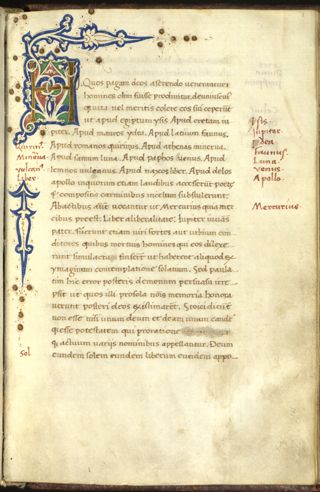 Quos pagani deos asserendo venerantur
homines olim fuisse produntur.
q vita vel meritis colere eos sui ceperunt
ut apud egiptum ysis. Apud cretam iu
piter. Apud mauros ydea. Apud latium faunus.
Apud romanos quirinus. Apud athenas minerva.
Apud samum luna. Apud paphos venus. Apud
lemnos vulcanus. Apud naxos liber. Apud delos
apollo inquorum etiam laudibus accesserut poete
& compositis carminibus incelum subtulerunt.
Abactibus aut vocantur ut Mercurius quia mer
cibus preest. Liber aliberalitate. Iupiter
pater. fuerunt etiam viri fortes aut urbium con
ditores quibus mortuis homines qui eos dilexe
runt simulacra finxerut ut haberent aliquod ex
ymaginum contemplatione solatium. Sed paula
tim hic error posteris demonum persuasu irre
psit ut quos illi prosola nois memoria honora
verunt posteri deos existimarent. Stoici dicunt
non esse nisi unum deum et deam unam eande
qz esse potestatem qui proratione
& actuum varijs nominibus appellantur. Deum
eundem solem eundem liberum eundem appo
Quirinus
Minerva
vulcanus
Liber
sol
Isis
Iupiter
Idea
Faunus
Luna
venus
Apollo
Mercurius